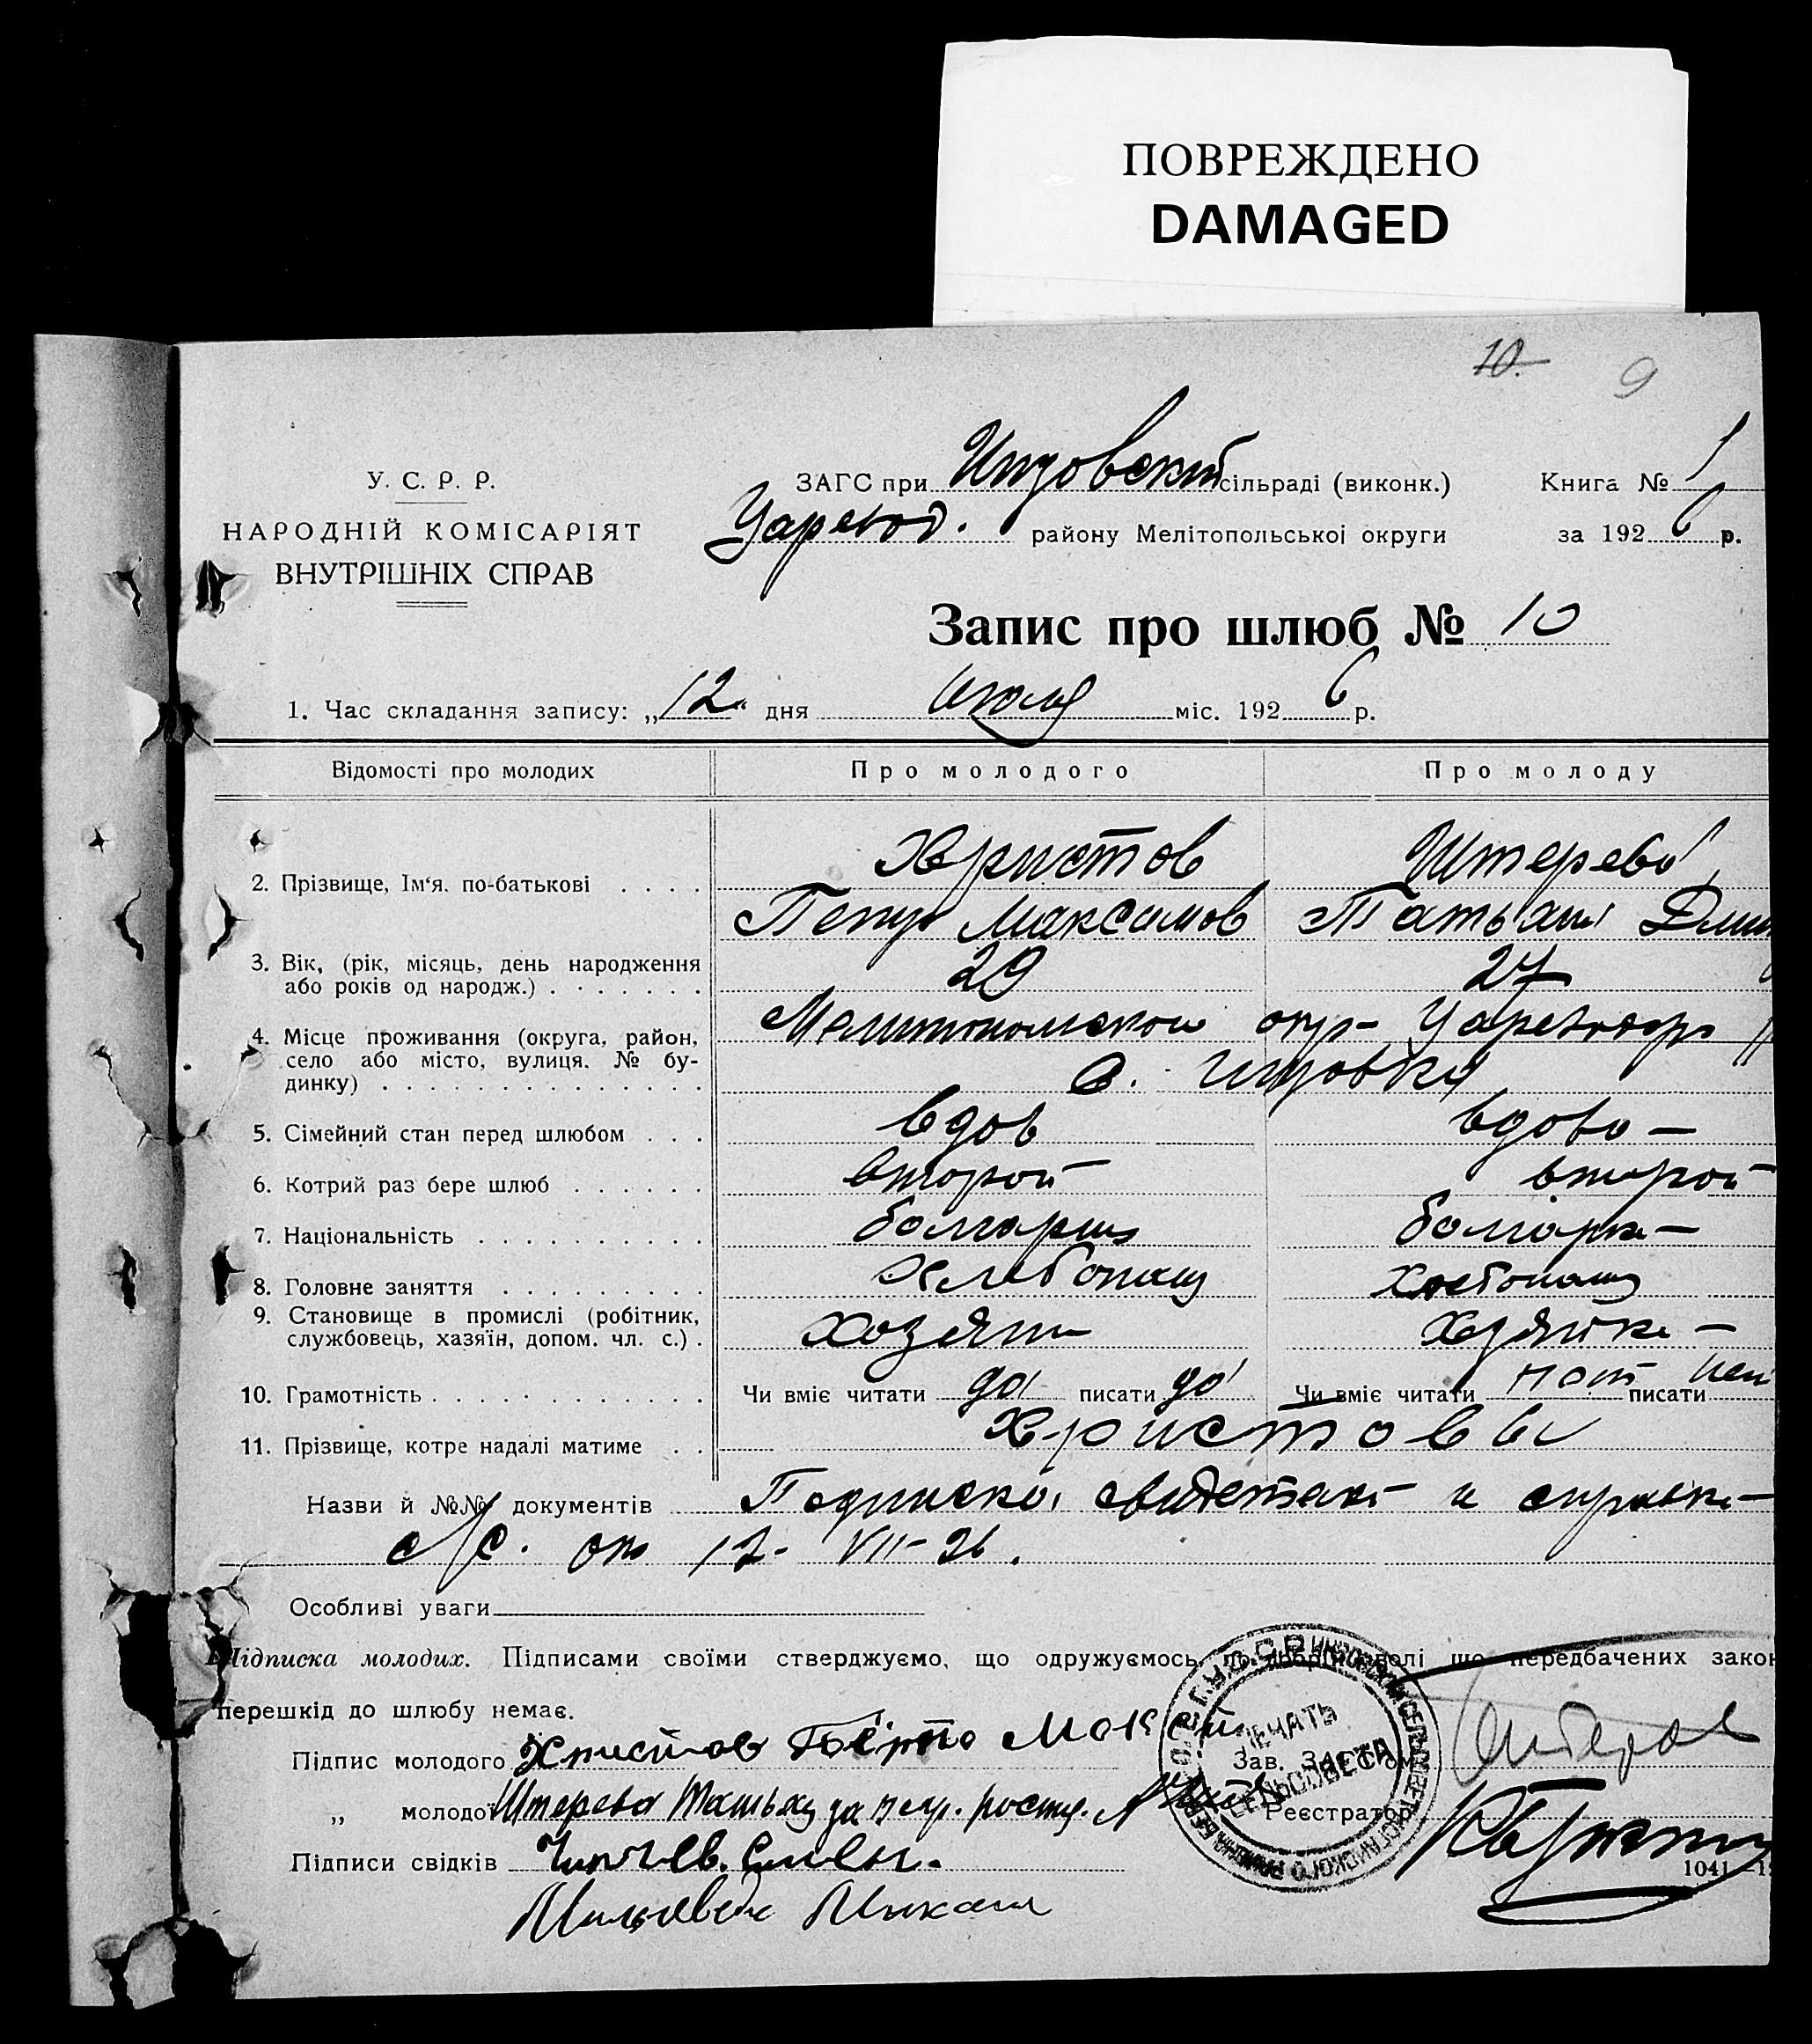 ПОВРЕЖДЕНО
DAMAGED
10. 9
У. С. Р. Р.
НАРОДНІЙ КОМІСАРІЯТ
ВНУТРІШНІХ СПРАВ
ЗАГС при Инзовской сільраді (виконк.) Книга № 1
Царевод. району Мелітопольської округи за 1926 р.
Запис про шлюб № 10
1. Час складання запису: „12" дня июля міс. 1926 р.
Відомості про молодих Про молодого Про молоду
2. Прізвище, Ім‘я. по-батькові . . . . Христов Штерева
Петр Максимов Татьяна Дми
3. Вік, (рік, місяць, день народження
або років од народж.) . . . . . . . 29 27
4. Місце проживання (округа, район,
село або місто, вулиця. № бу-
динку) . . . . . . . . . . . . . . Мелитопольской окр- Царевод р
с. Инзовка
5. Сімейний стан перед шлюбом . . . вдов вдова -
6. Котрий раз бере шлюб . . . . . . второй второй
7. Національність . . . . . . . . . . болгарин болгарка -
8. Головне заняття . . . . . . . . . Хлебопаш хлебопаш
9. Становище в промислі (робітник,
службовець, хазяїн, допом. чл. с.) . хозяин Хозяйка -
10. Грамотність . . . . . . . . . . . . Чи вміє читати да писати да Чи вміє читати нет писати нет
11. Прізвище, котре надалі матиме . . Христовы
Назви й №№ документів Подписка, и справка -
с/с. от 12- VII-26.
Особливі уваги
Підписка молодих. Підписами своїми стверджуємо, що одружуємось по добрій волі що передбачених закон
перешкід до шлюбу немає.
Підпис молодого Христов Мак
„ молодої Штерева Татьяну за негр. росп.
Зав. ЗАГС'ом
Реєстратор
Підписи свідків
ПЕЧАТЬ
СЕЛЬСОВЕТА
1041